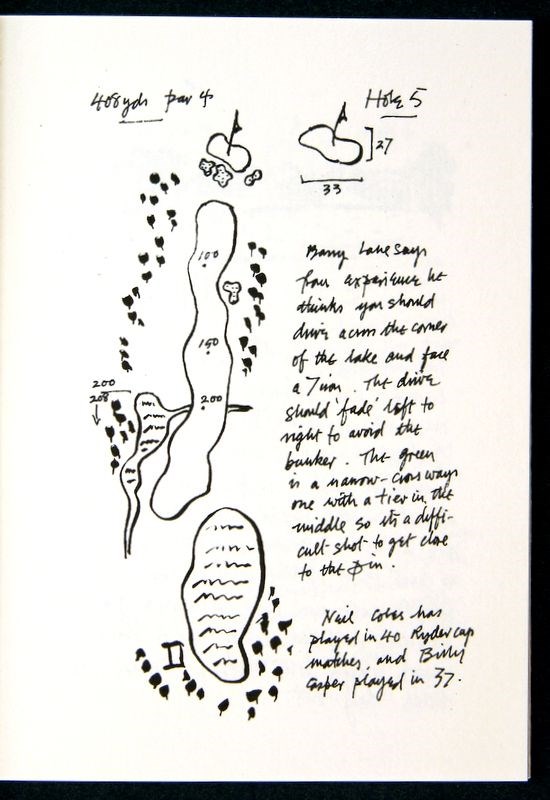 408 yds par 4
Hole 5
27
33
100
150
200
200
208
Barry Lane says
from experience he
thinks you should
drive across the corner
of the lake and face
a 7 iron. The drive
should 'fade' left to
right to avoid the
bunker. The green
is a narrow-crossways
one with a tier in the
middle so its a diffi-
cult shot to get close
to the pin.
Neil Coles has
played in 40 Ryder cap
matches, and Billy
Casper played in 37.